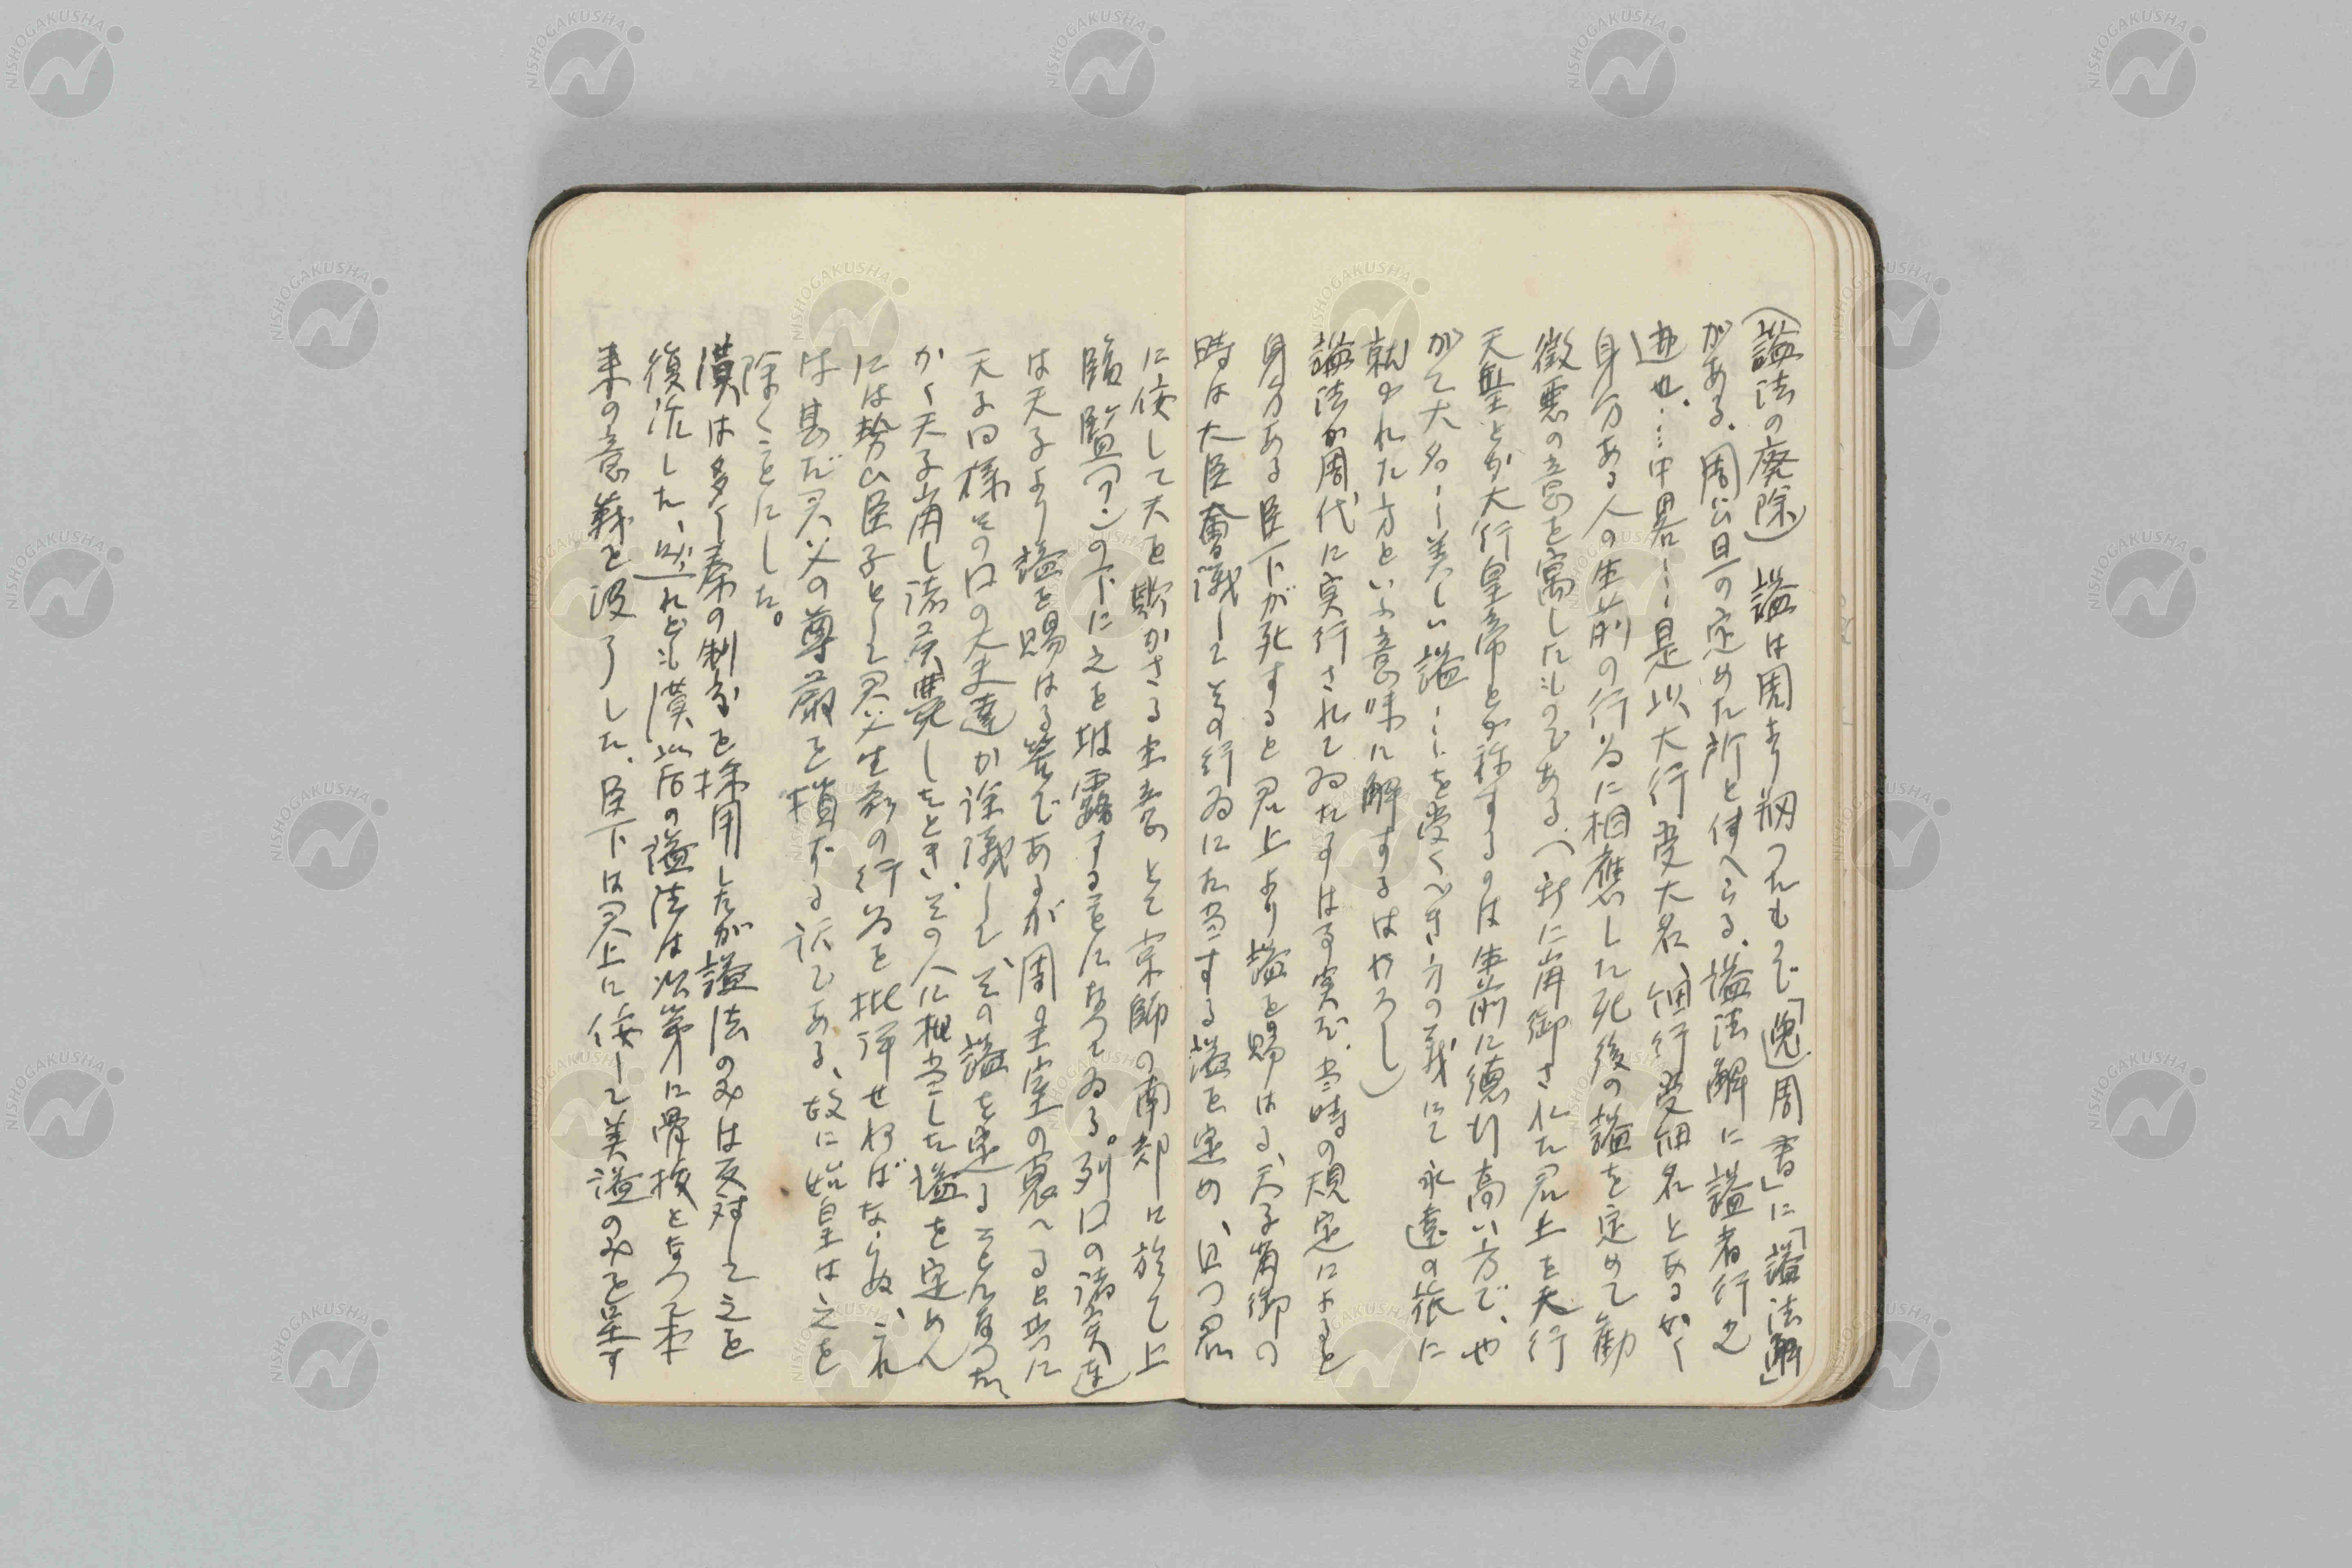 (諡法の廃除) 諡は周より剏つたもので「逸周書」に「諡法解」
がある。周公旦の定めた所と傳へらる、諡法解に諡者行之
迹也.……中畧……是以大行受大名、細行受細名とある如く
身分ある人の生前の行為に相應した死後の諡を定めて勧
徴悪の意を寓したものである、(新に崩御された君上を大行
天皇とか大行皇帝と称するのは生前に徳行高い方で、や
がて大名……美しい諡……を受くべき方の義にて永遠の旅に
就かれた方といふ意味に解するはやろし)
諡法が周代に実行されてゐた事は事実だ、当時の規定によると
身分ある臣下が死すると君上より諡を賜はる、天子崩御の
時は大臣會議してその行為に相当する諡を定め、且つ君
に佞して天を欺かざる意とて京師の南郊に於て上
臨監(ワ)の下に之を披露することになつてゐる。列囗の諸矦達
は天子より諡を賜はる筈であるが周の王室の衰へると共に
天子同様その囗の大夫達が詮議して、その諡を定ることになつた、
かく天子崩し諸矦薨じたとき、その人に相当した諡を定めん
には勢ひ臣子として君父生前の行為を批評せねばならぬ、これ
は甚だ君父の尊嚴を損ずる訳である、故に始皇は之を
除くことにした。
漢は多く秦の制度を採用したが諡法のみは反対して之を
復活した、然れども漢以后の諡法は次第に骨抜となつて本
来の意義を没了した、臣下は君上に佞して美諡のみを呈す
NISHOGAKUSHA